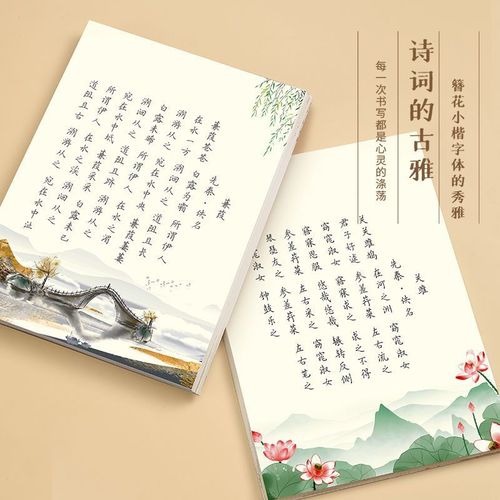 簪花小楷字体的秀雅
诗词的古雅
每一次书写都是心灵的涤荡
蒹葭
先秦·佚名
蒹葭苍苍 白露为霜 所谓伊人
在水一方 溯洄从之 道阻且长
溯游从之 宛在水中央 蒹葭萋萋
白露未晞 所谓伊人 在水之湄
溯洄从之 道阻且跻 溯游从之
宛在水中坻 蒹葭采采 白露未已
所谓伊人 在水之涘 溯洄从之
道阻且右 溯游从之 宛在水中沚
关雎
先秦·佚名
关关雎鸠 在河之洲 窈窕淑女
君子好逑 参差荇菜 左右流之
窈窕淑女 寤寐求之 求之不得
寤寐思服 悠哉悠哉 辗转反侧
参差荇菜 左右采之 窈窕淑女
琴瑟友之 参差荇菜 左右芼之
窕淑女 钟鼓乐之